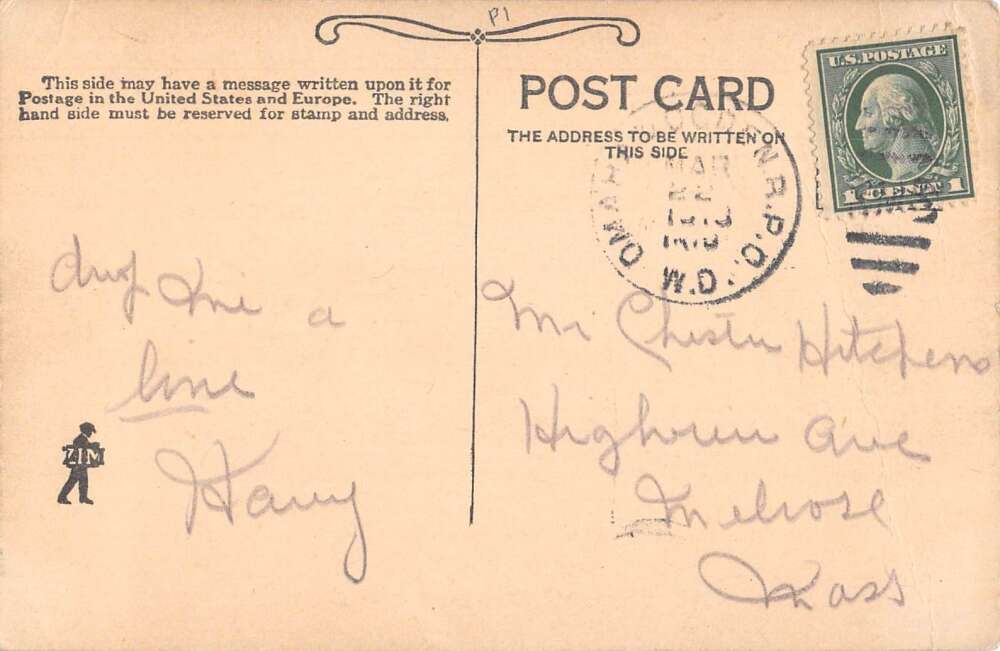 P1
This side may have a message written upon it for
Postage in the United States and Europe. The right
hand side must be reserved for stamp and address.
POST CARD
THE ADDRESS TO BE WRITTEN ON
THIS SIDE
U.S. POSTAGE
1 CENT 1
OMAHA & OGDEN R.P.O.
MAR
22
1913
W.D.
drop me a
line
Harry
ZIM
Mr Chester Hitchens
Ave
Melrose
Mass